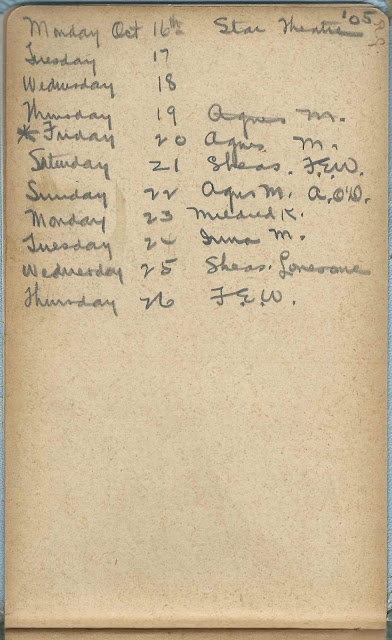 Monday Oct 16th Star Theatre '05
Tuesday 17
Wednesday 18
Thursday 19 Agnes M.
* Friday 20 Agnes M.
Saturday 21 Sheas. F.E.W.
Sunday 22 Agnes M. A.O'D.
Monday 23 Mildred K.
Tuesday 24 Irma M.
Wednesday 25 Sheas. Lonesome
Thursday 26 F.E.W.